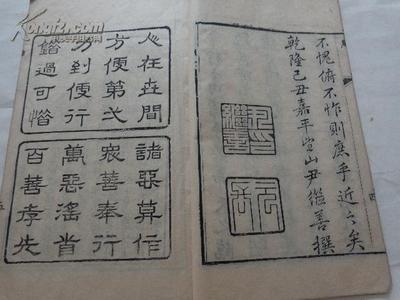 不愧俯不怍則庶乎近之矣
乾隆己丑嘉平望山尹繼善撰
心在世間
方便第弌
力到便行
錯過可惜
諸惡莫作
衆善奉行
萬惡淫首
百善孝先